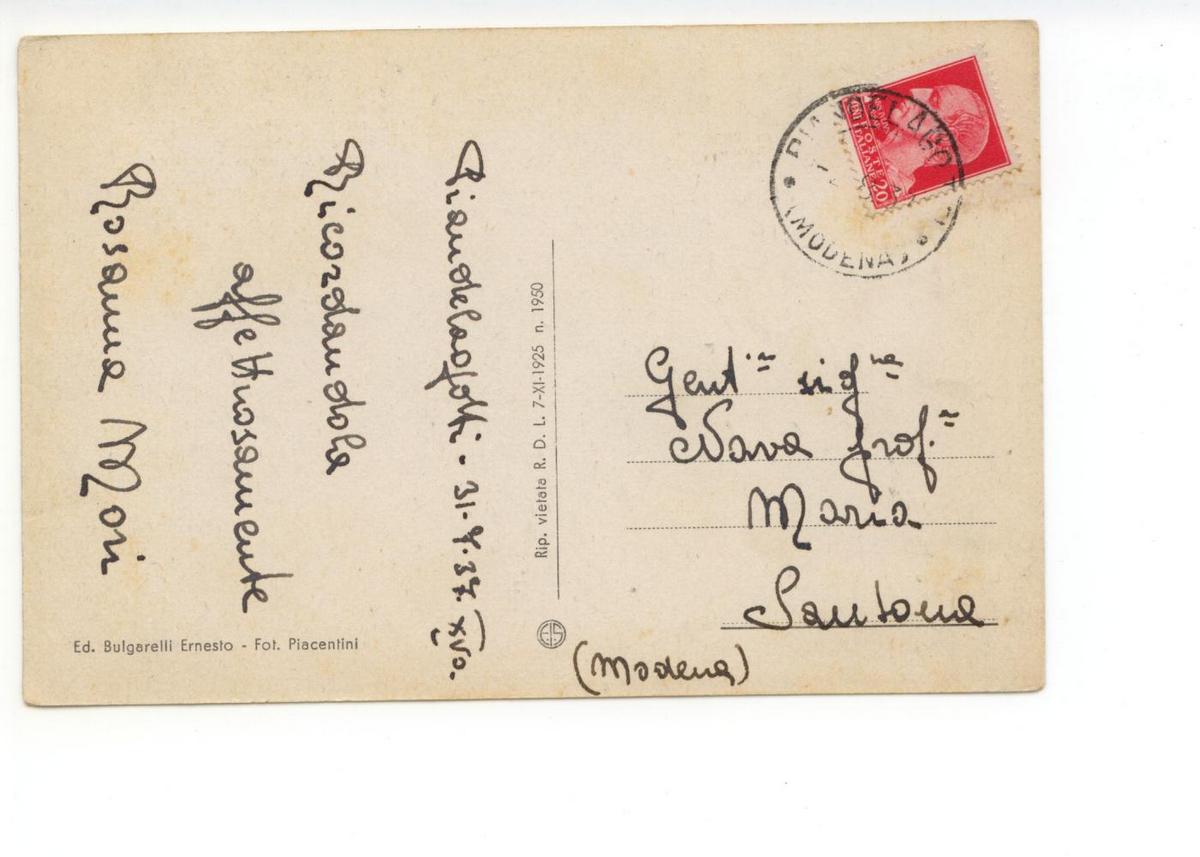 Piandelagotti - 31-7-37. XVo.
Ricordandola
affettuosamente
Rosanna Mori
Ed. Bulgarelli Ernesto - Fot. Piacentini
Rip. vietata R. D. L. 7-XI-1925 n. 1950
POSTE
ITALIANE 20
(MODENA)
Gent.ma sig.na
Nava prof.
Maria
Santona
(Modena)